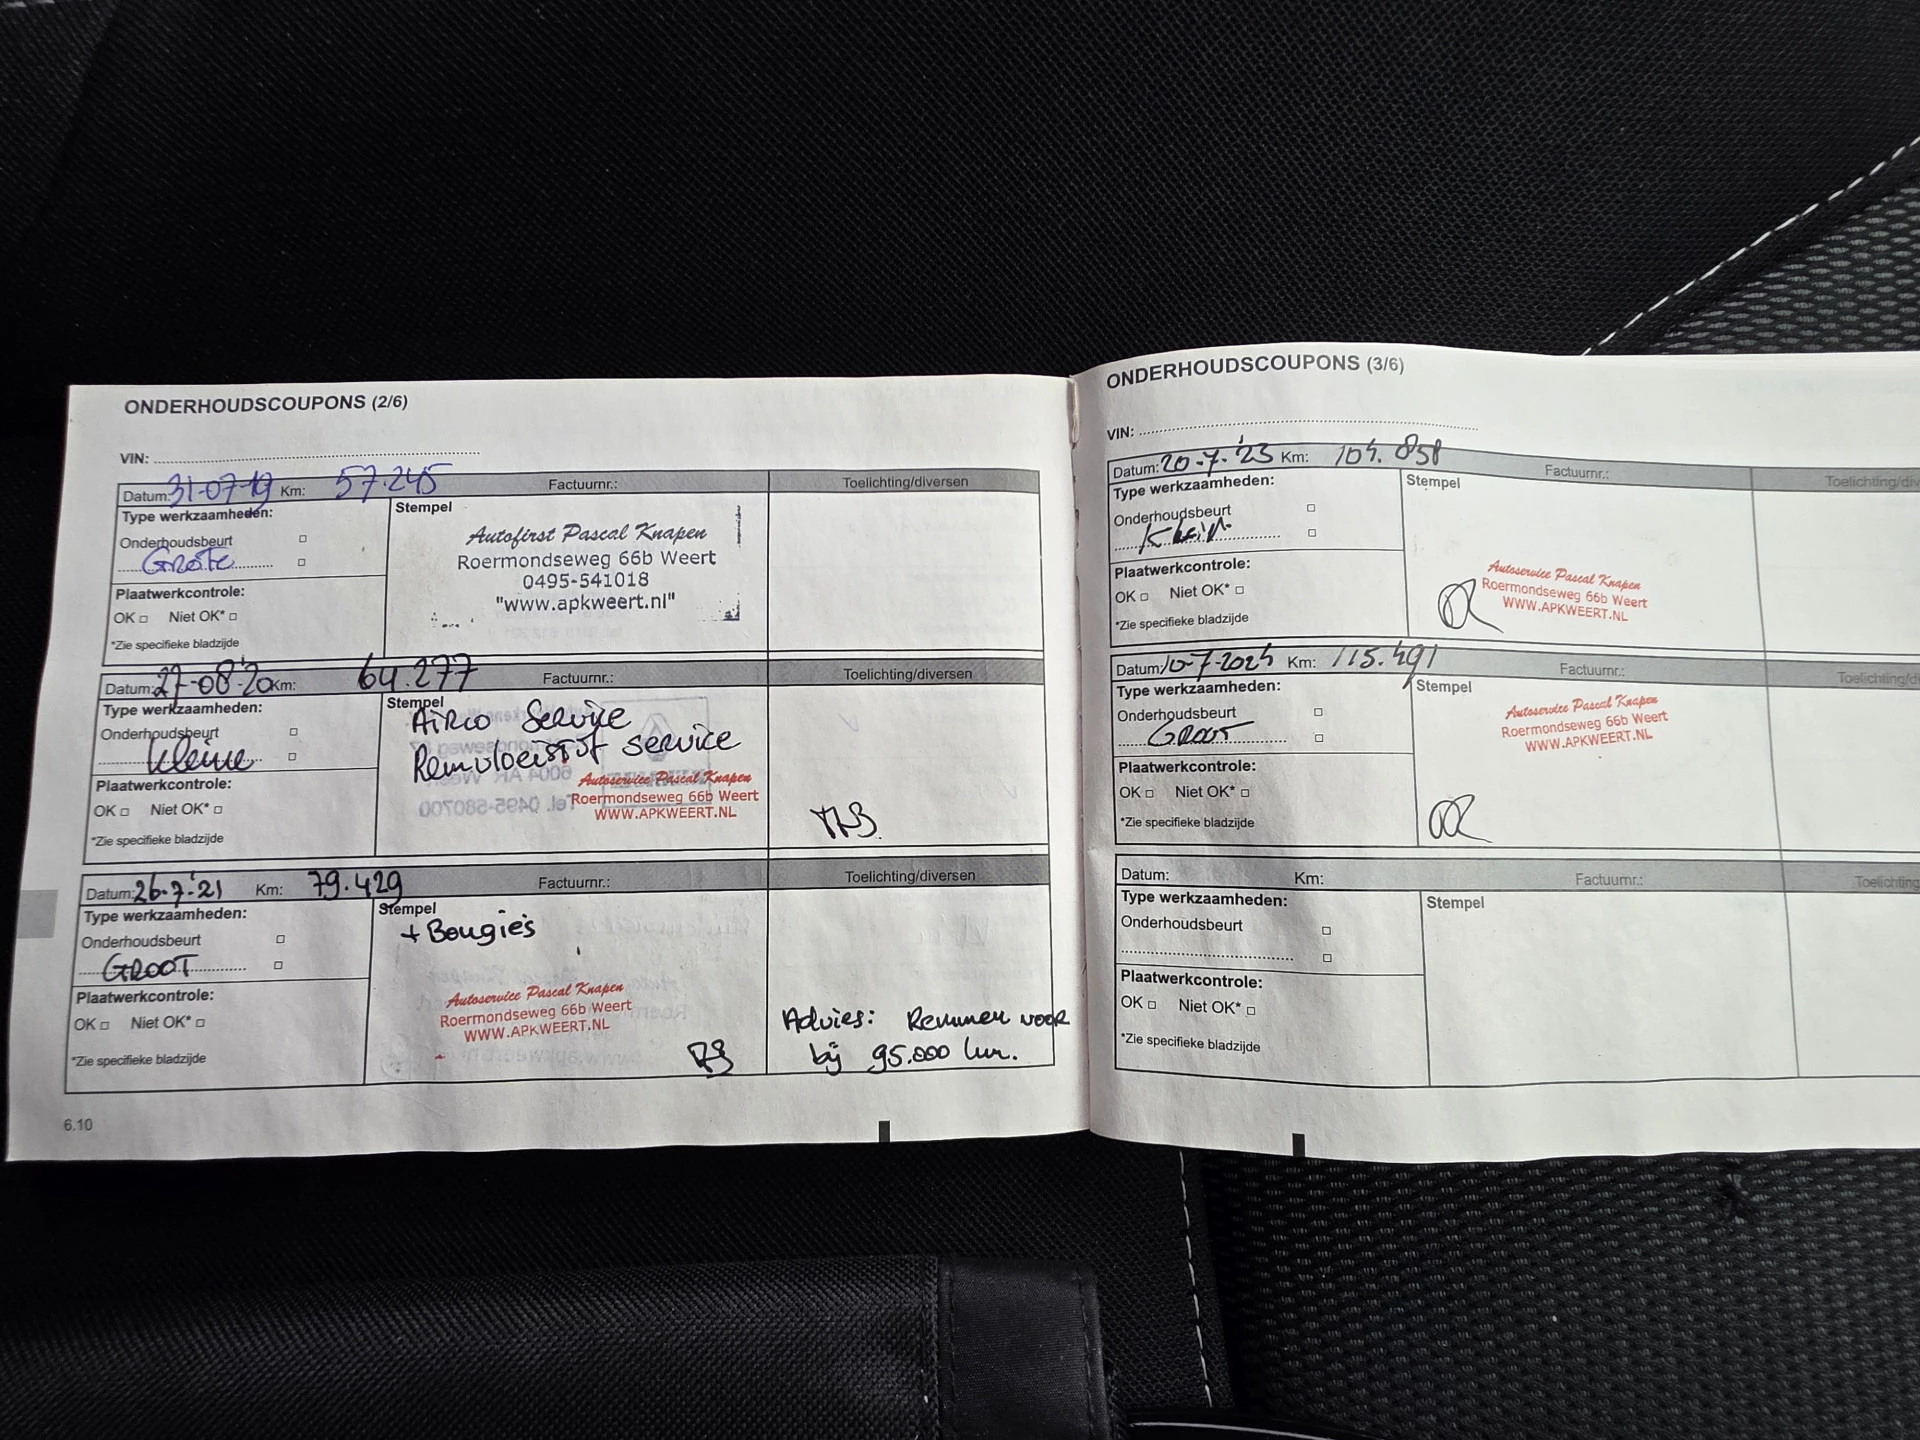 ONDERHOUDSCOUPONS (2/6)
VIN:
Datum: 31-07-19 Km: 57.245 Factuurnr.: Toelichting/diversen
Type werkzaamheden:
Stempel
Onderhoudsbeurt
Grote
Autofirst Pascal Knapen
Roermondseweg 66b Weert
0495-541018
"www.apkweert.nl"
Plaatwerkcontrole:
OK Niet OK*
*Zie specifieke bladzijde
Datum: 27-08-'20 Km: 64.277 Factuurnr.: Toelichting/diversen
Type werkzaamheden:
Stempel
Onderhoudsbeurt
kleine
Airco Service
Remvloeistof service
Autoservice Pascal Knapen
Roermondseweg 66b Weert
WWW.APKWEERT.NL
Plaatwerkcontrole:
OK Niet OK*
*Zie specifieke bladzijde
Datum: 26-7-'21 Km: 79.429 Factuurnr.: Toelichting/diversen
Type werkzaamheden:
Stempel
+ Bougies
Onderhoudsbeurt
GROOT
Autoservice Pascal Knapen
Roermondseweg 66b Weert
WWW.APKWEERT.NL
Plaatwerkcontrole:
OK Niet OK*
*Zie specifieke bladzijde
Advies: Remmen voor
bij 95.000 km.
6.10
ONDERHOUDSCOUPONS (3/6)
VIN:
Datum: 20-7-'23 Km: 104.858 Factuurnr.: Toelichting/div
Type werkzaamheden:
Stempel
Onderhoudsbeurt
Klein
Autoservice Pascal Knapen
Roermondseweg 66b Weert
WWW.APKWEERT.NL
Plaatwerkcontrole:
OK Niet OK*
*Zie specifieke bladzijde
Datum: 10-7-2024 Km: 115.491 Factuurnr.: Toelichting/d
Type werkzaamheden:
Stempel
Onderhoudsbeurt
GROOT
Autoservice Pascal Knapen
Roermondseweg 66b Weert
WWW.APKWEERT.NL
Plaatwerkcontrole:
OK Niet OK*
*Zie specifieke bladzijde
Datum: Km: Factuurnr.: Toelichting
Type werkzaamheden:
Stempel
Onderhoudsbeurt
Plaatwerkcontrole:
OK Niet OK*
*Zie specifieke bladzijde